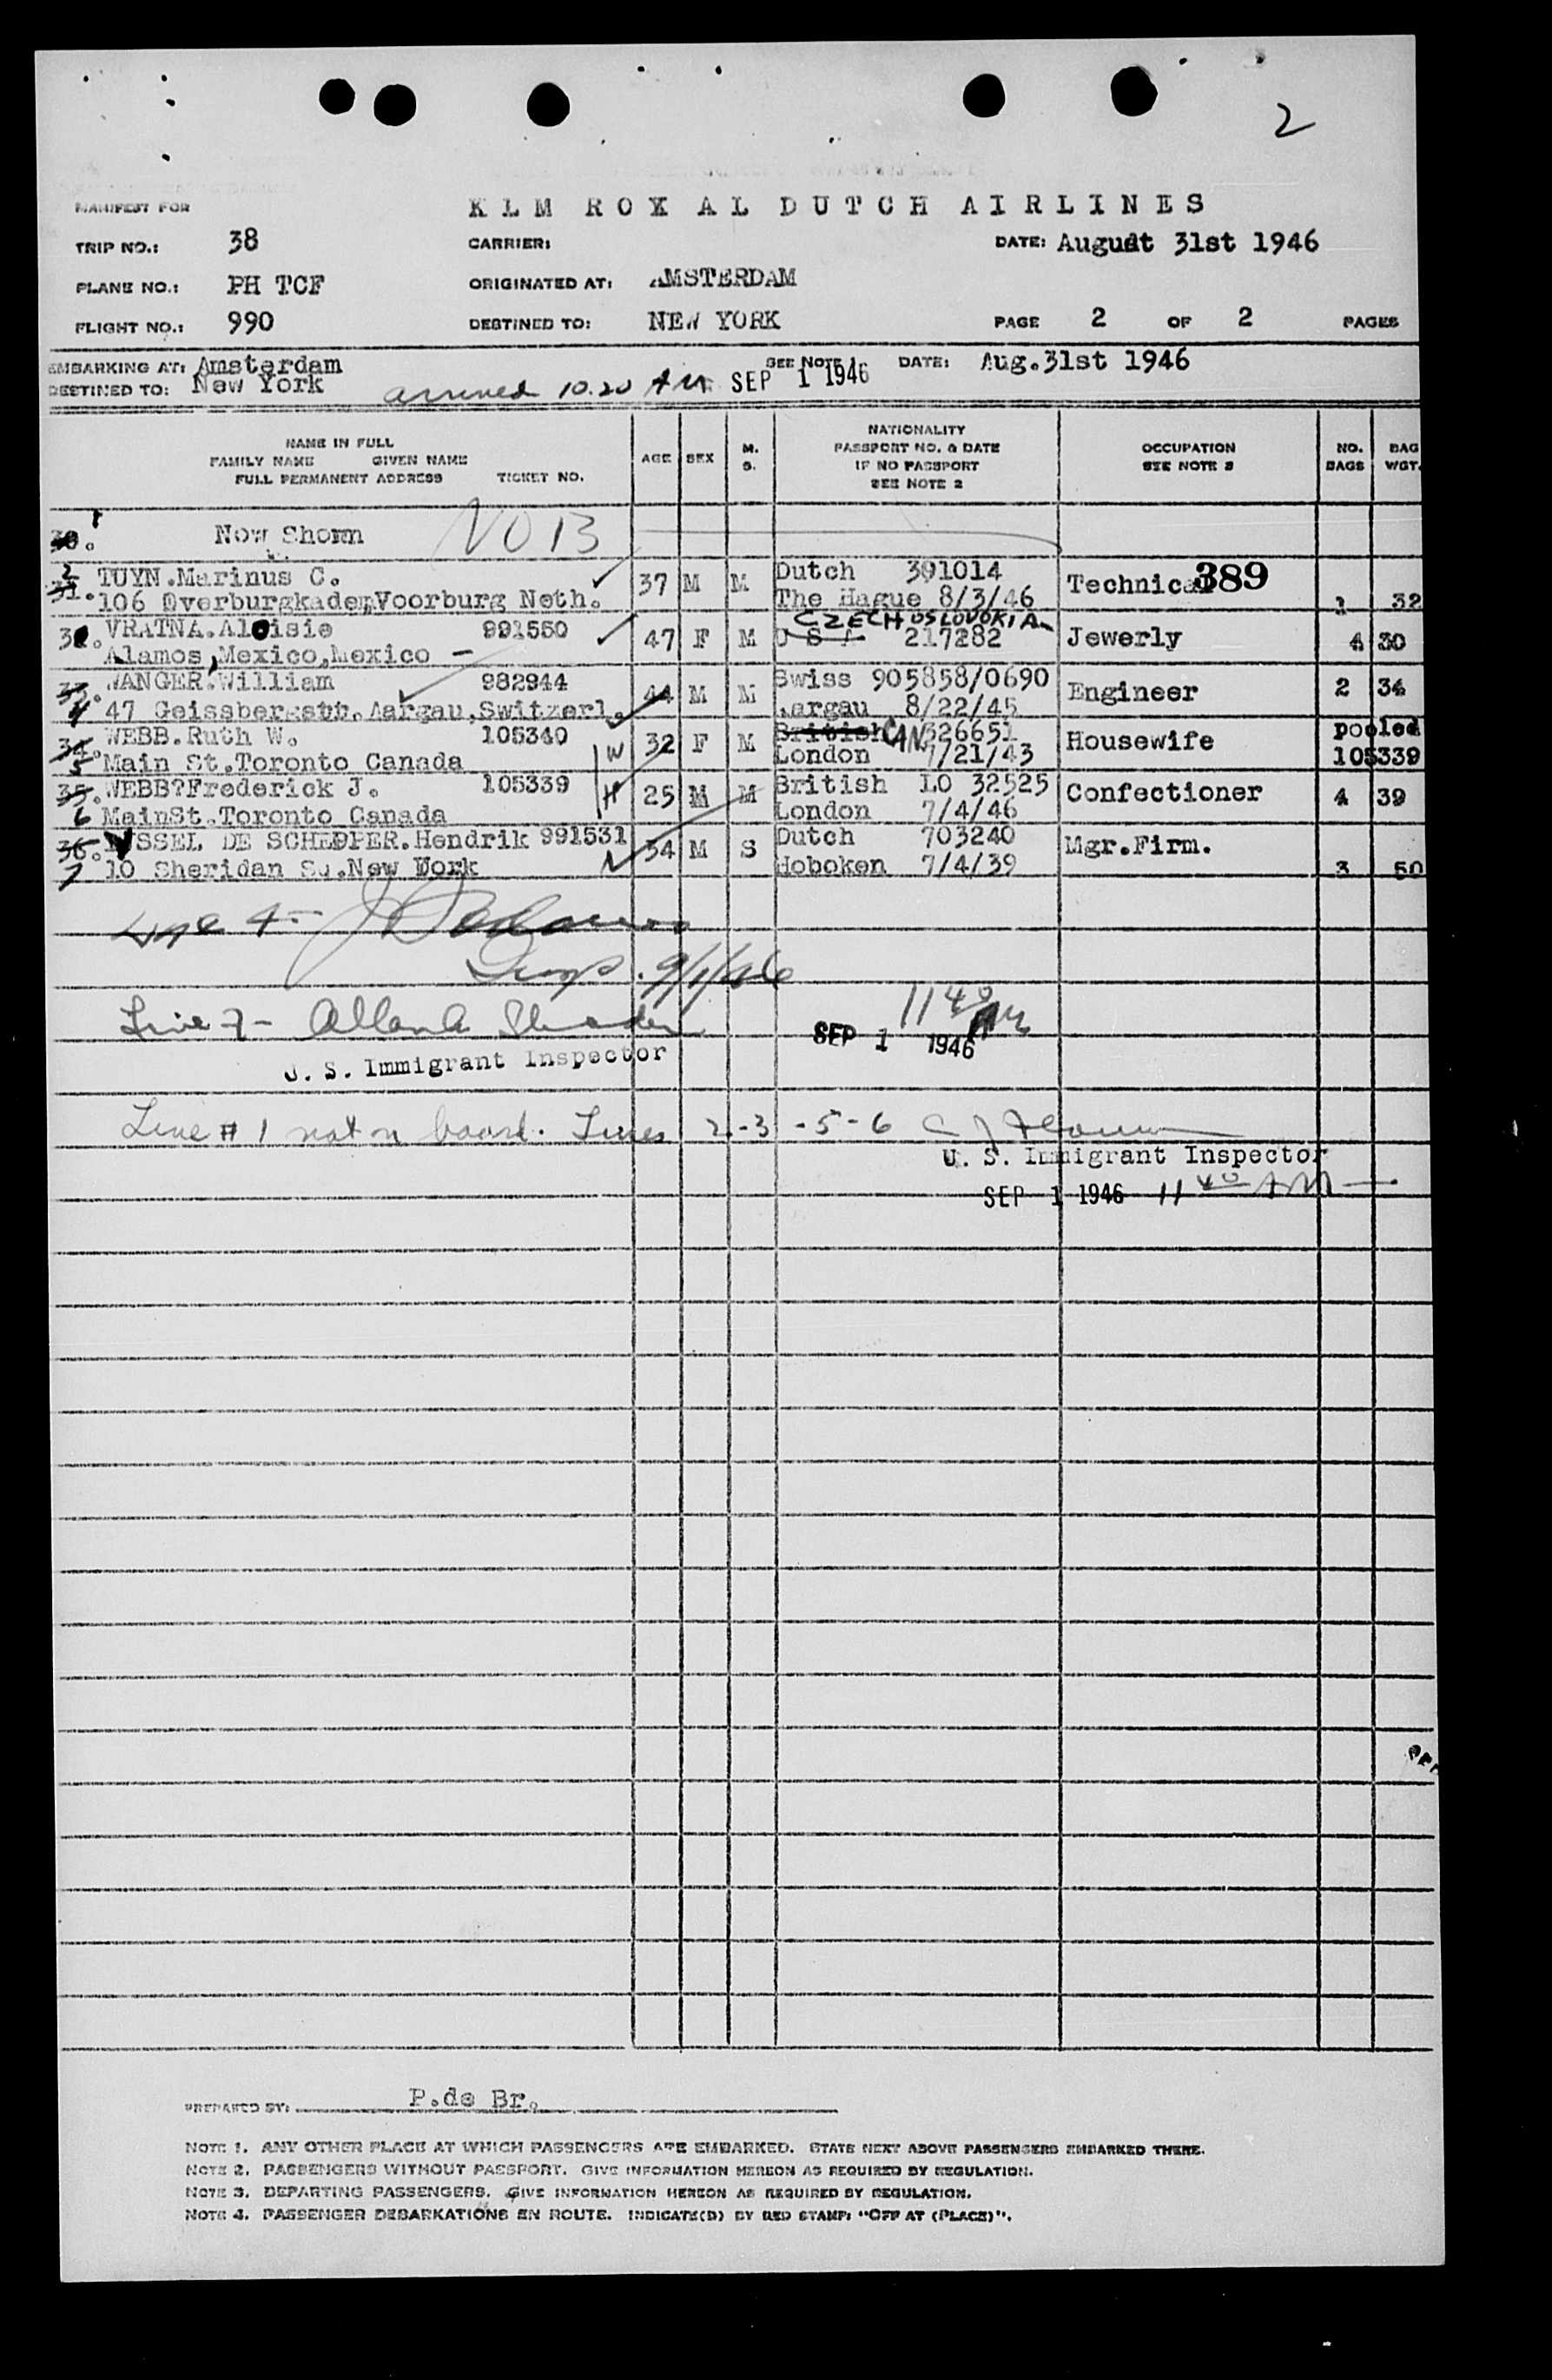 2
MANIFEST FOR
K L M  R O X A L  D U T C H  A I R L I N E S
TRIP NO.: 38 CARRIER: DATE: August 31st 1946
PLANE NO.: PH TCF ORIGINATED AT: AMSTERDAM
FLIGHT NO.: 990 DESTINED TO: NEW YORK PAGE 2 OF 2 PAGES
EMBARKING AT: Amsterdam SEE NOTE 1 DATE: Aug.31st 1946
DESTINED TO: New York arrived 10.20 AM SEP 1 1946
NAME IN FULL
FAMILY NAME GIVEN NAME
FULL PERMANENT ADDRESS TICKET NO.
AGE SEX M. S.
NATIONALITY
PASSPORT NO. & DATE
IF NO PASSPORT
SEE NOTE 2
OCCUPATION
SEE NOTE 3
NO. BAGS
BAG WGT.
30. 1 Now Shown NOB
2 31. TUYN.Marinus C. 37 M M Dutch 391014 Technical 389
106 Overburgkaden,Voorburg Neth. The Hague 8/3/46 1 32
3 VRATNA.Aloisie 991550 47 F M U S A CZECHOSLOVOKIA 217282 Jewerly 4 30
Alamos,Mexico,Mexico -
33. WANGER.William 982944 44 M M Swiss 905858/0690 Engineer 2 34
4 47 Geissbergstr. Aargau,Switzerl. Aargau 8/22/45
34. WEBB.Ruth W. 105340 W 32 F M British CAN 326651 Housewife pooled
5 Main St.Toronto Canada London 7/21/43 105339
35. WEBB?Frederick J. 105339 H 25 M M British LO 32525 Confectioner 4 39
6 MainSt.Toronto Canada London 7/4/46
36. SSEL DE SCHEPPER.Hendrik 991531 34 M S Dutch 703240 Mgr.Firm.
7 10 Sheridan Sq.New York Hoboken 7/4/39 3 50
Line 4 -
Insp. 9/1/46
Line 7 - Allan
1140 AM
SEP 1 1946
U. S. Immigrant Inspector
Line # 1 not on board. Lines 2-3-5-6
U. S. Immigrant Inspector
SEP 1 1946 11 40 AM
PREPARED BY: P.de Br.
NOTE 1. ANY OTHER PLACE AT WHICH PASSENGERS ARE EMBARKED. STATE NEXT ABOVE PASSENGERS EMBARKED THERE.
NOTE 2. PASSENGERS WITHOUT PASSPORT. GIVE INFORMATION HEREON AS REQUIRED BY REGULATION.
NOTE 3. DEPARTING PASSENGERS. GIVE INFORMATION HEREON AS REQUIRED BY REGULATION.
NOTE 4. PASSENGER DEBARKATIONS EN ROUTE. INDICATE(D) BY RED STAMP: "OFF AT (PLACE)".